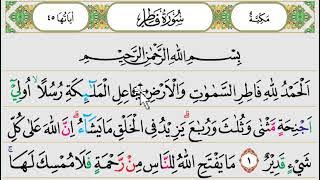 مَكِّيَّةٌ سُوْرَةُ فَاطِرٍ اٰيَاتُهَا ٤٥
بِسْمِ اللهِ الرَّحْمٰنِ الرَّحِيْمِ
اَلْحَمْدُ لِلّٰهِ فَاطِرِ السَّمٰوٰتِ وَالْاَرْضِ جَاعِلِ الْمَلٰٓئِكَةِ رُسُلًا اُولِيْٓ
اَجْنِحَةٍ مَّثْنٰى وَثُلٰثَ وَرُبٰعَ ۗ يَزِيْدُ فِى الْخَلْقِ مَا يَشَاۤءُ ۗ اِنَّ اللهَ عَلٰى كُلِّ
شَيْءٍ قَدِيْرٌ ١ مَا يَفْتَحِ اللهُ لِلنَّاسِ مِنْ رَّحْمَةٍ فَلَا مُمْسِكَ لَهَا ۚ